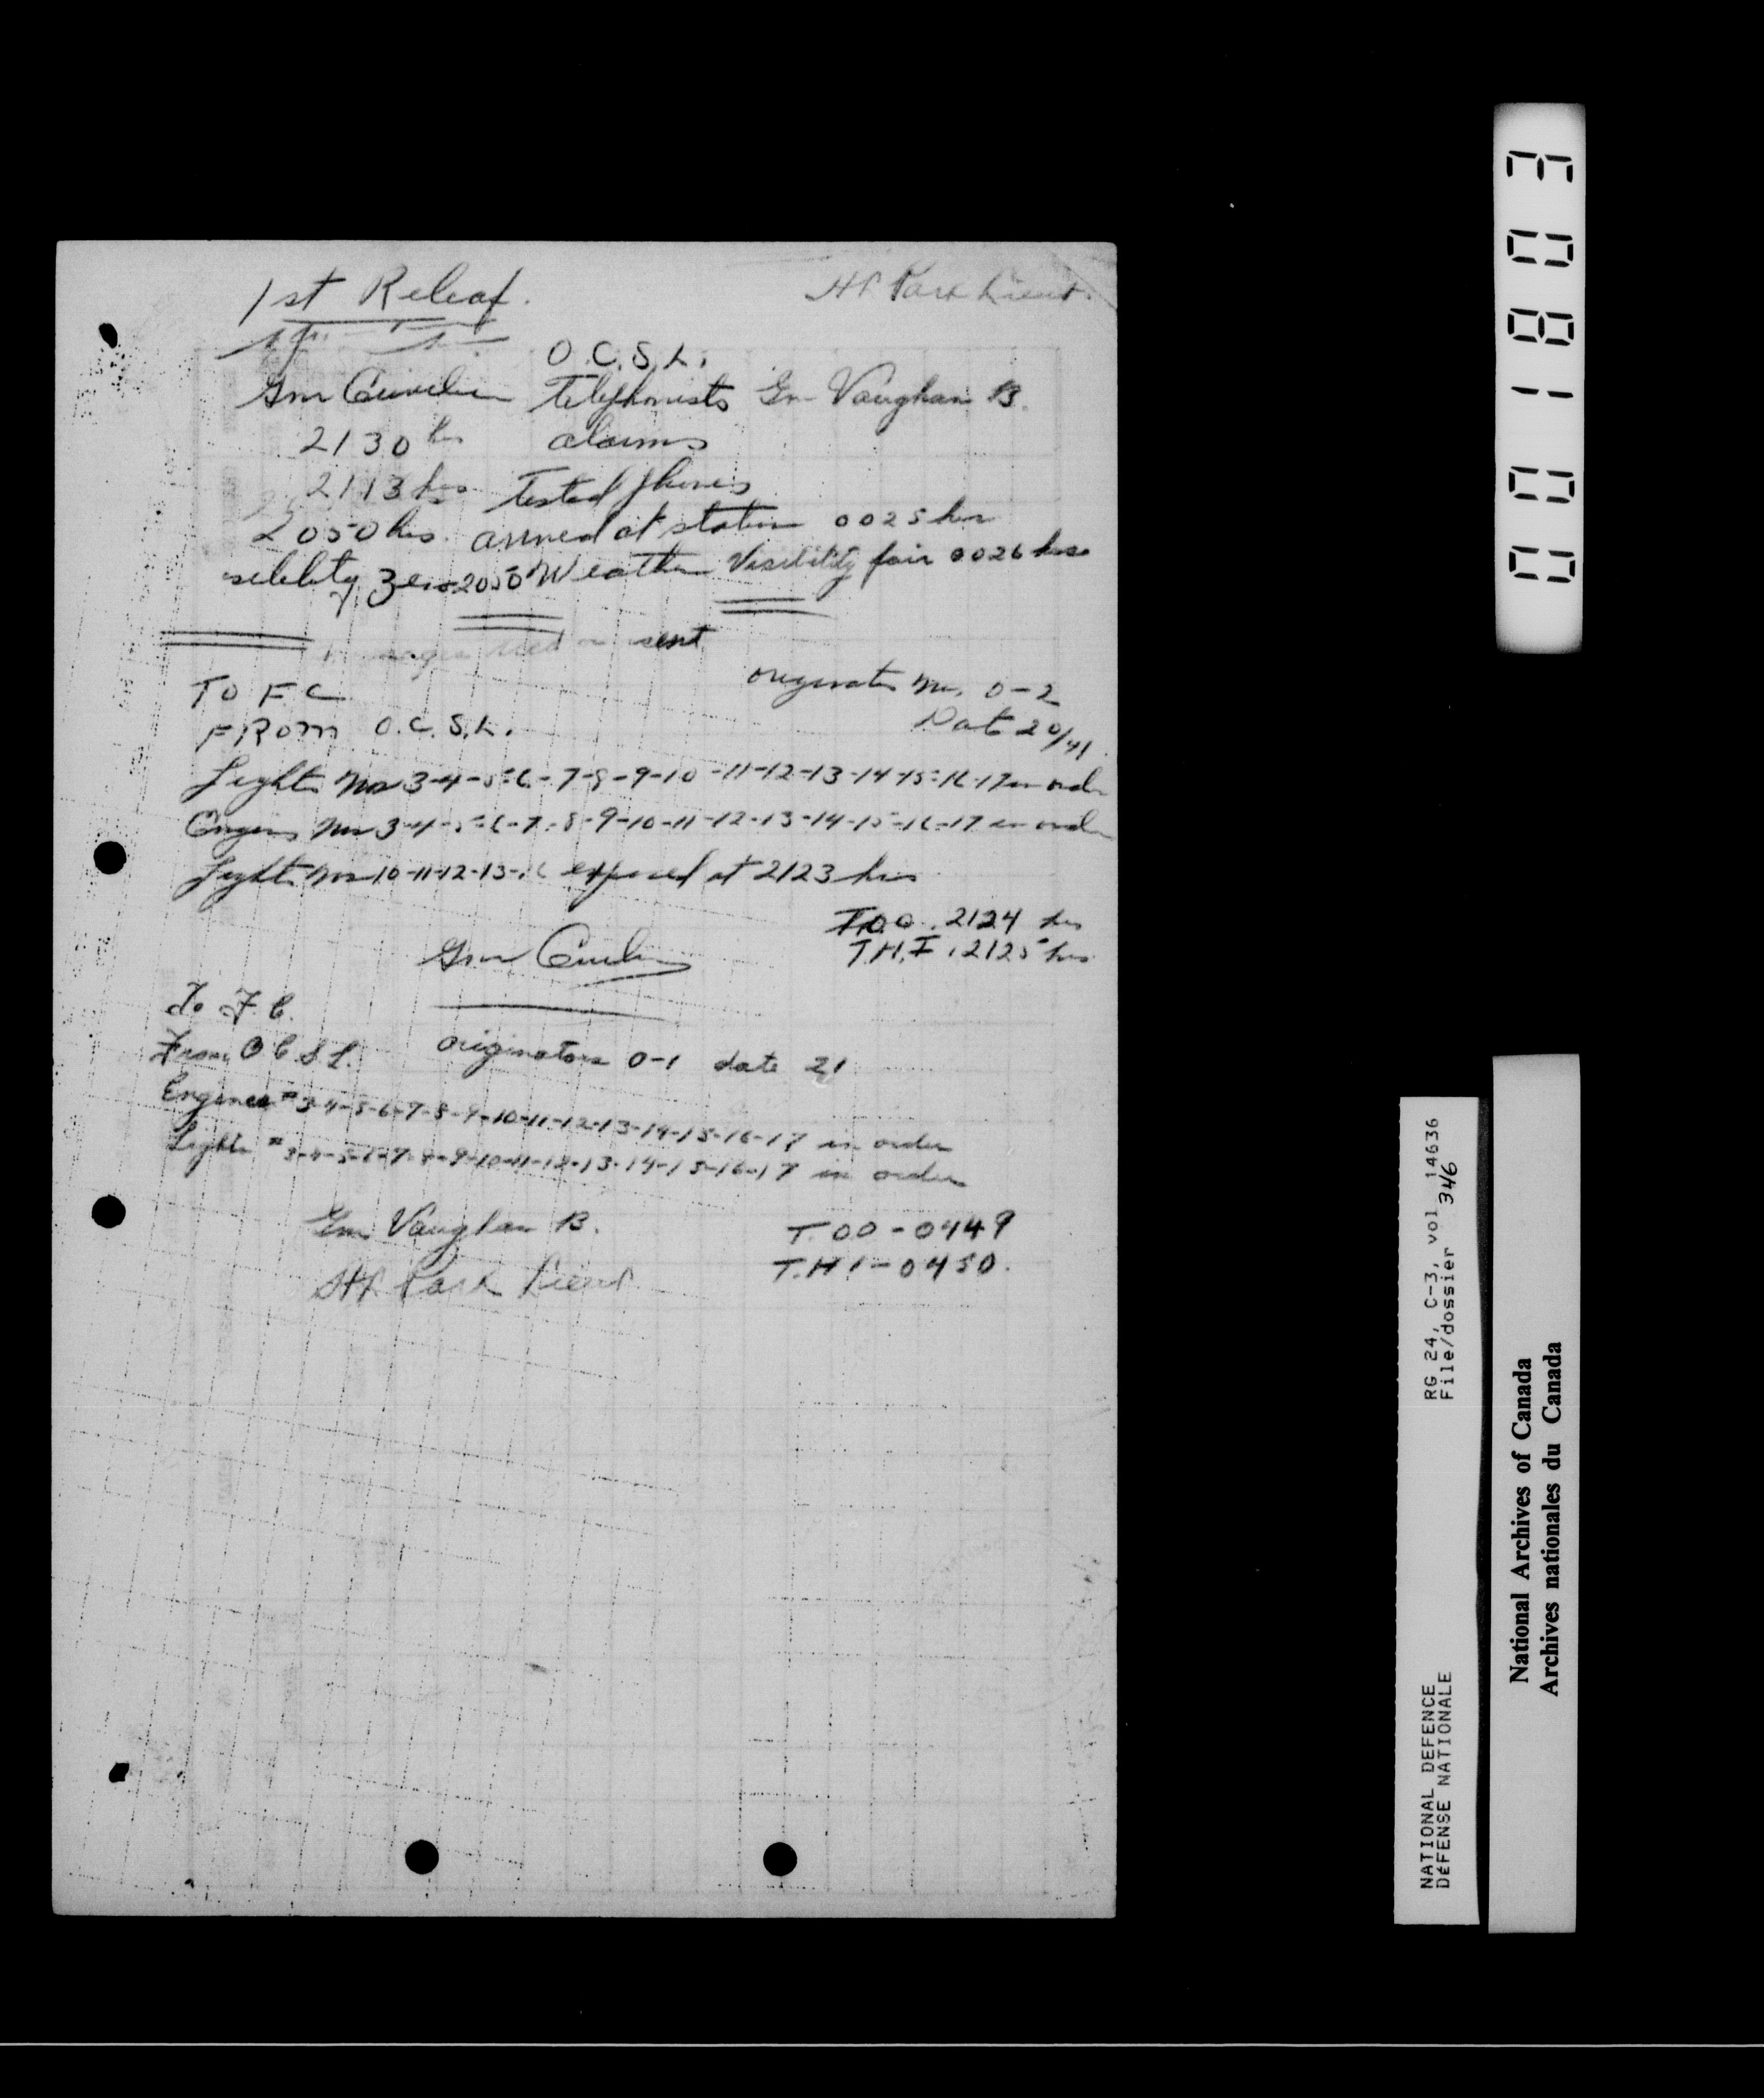 1st Releaf.
H Park Lieut.
O.C.S.L.
Gnr Telephonists Gnr Vaughan B.
2130 hrs alarms
2113 hrs Tested phones
2050 hrs. arrived at station 0025 hrs
Zero 2050 Weather Visibility fair 0026 hrs
sent
TO FC originators No. 0-2
FROM O.C.S.L. Date 20/41
Lights Nos 3-4-5-6-7-8-9-10-11-12-13-14-15-16-17 in order
Engines Nos 3-4-5-6-7-8-9-10-11-12-13-14-15-16-17 in order
Lights Nos 10-11-12-13-16 exposed at 2123 hrs
T.O.O. 2124 hrs
Gnr T.H.I. 2125 hrs
To F.C.
From O C S L. originators 0-1 date 21
Engines # 3-4-5-6-7-8-9-10-11-12-13-14-15-16-17 in order
Lights # 3-4-5-6-7-8-9-10-11-12-13-14-15-16-17 in order
Gnr Vaughan B. T.OO-0449
H Park Lieut T.H1-0450.
0001803
RG 24, C-3, vol 14636
File/dossier 346
NATIONAL DEFENCE
DéFENSE NATIONALE
National Archives of Canada
Archives nationales du Canada